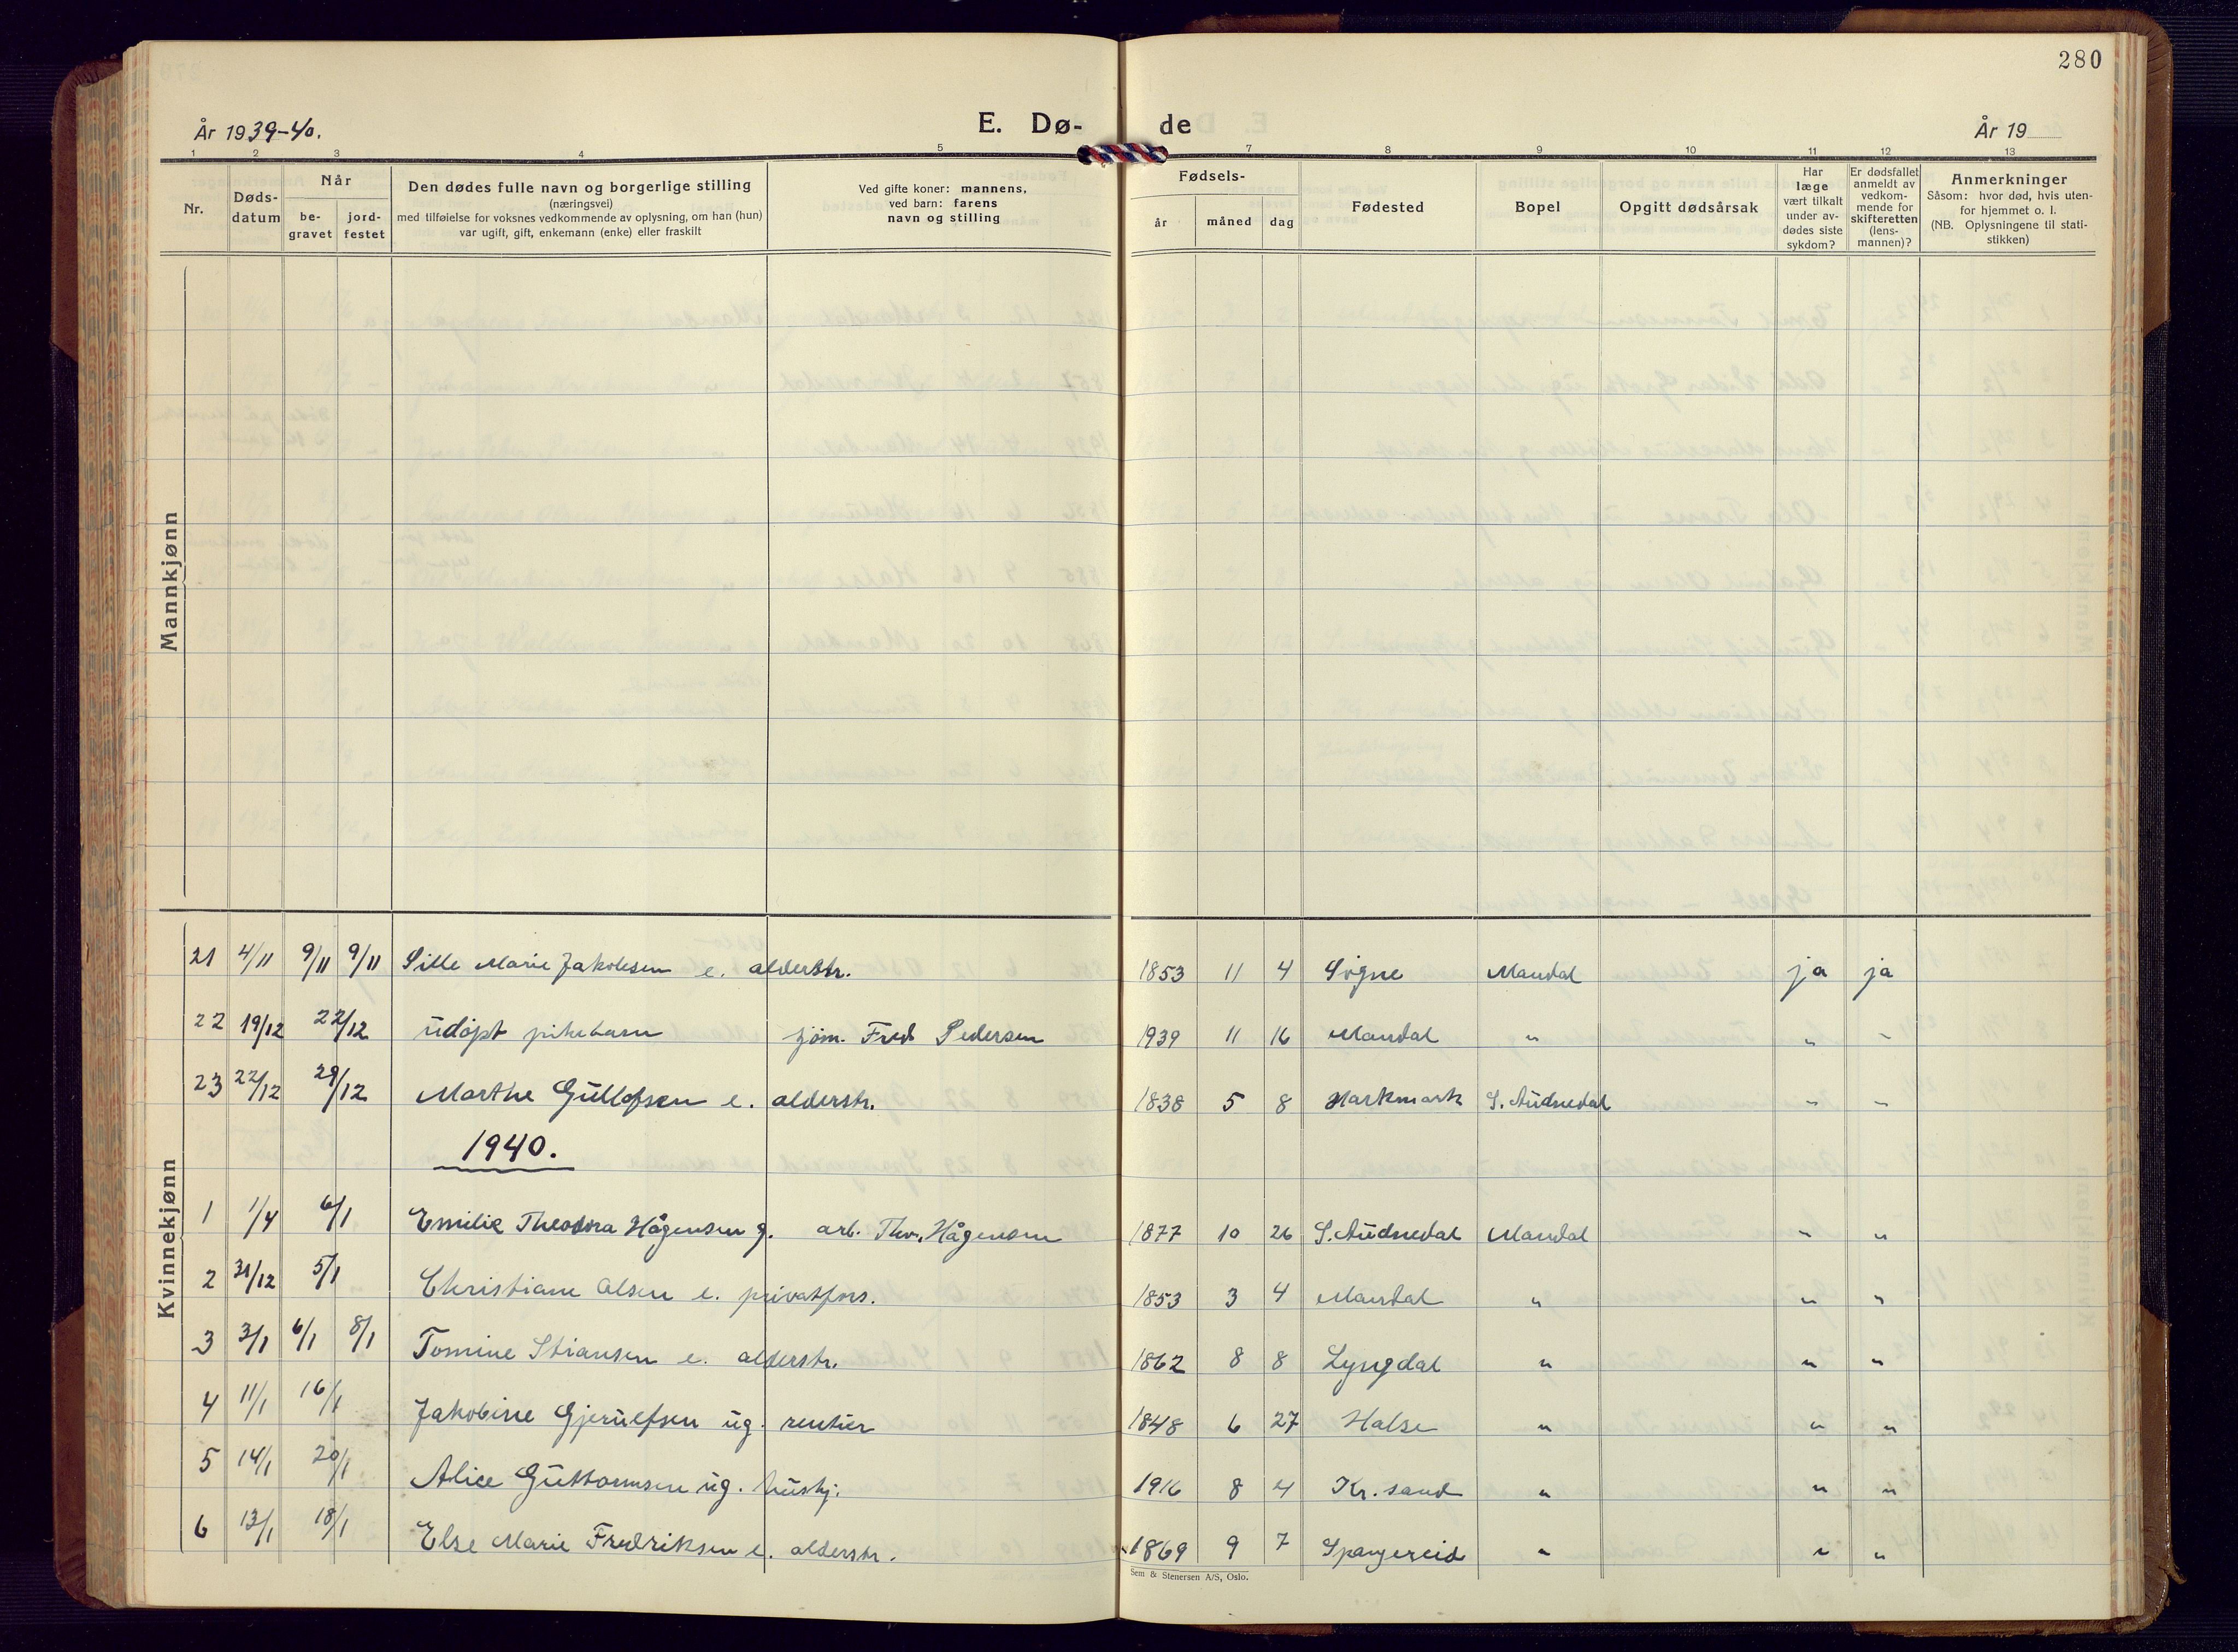 280
År 1939-40.
E. Dø-
de
År 19
1 2 3 4 5
7 8 9 10 11 12 13
Nr.
Døds-
datum
Når
be-
gravet
jord-
festet
Den dødes fulle navn og borgerlige stilling
(næringsvei)
med tilføielse for voksnes vedkommende av oplysning, om han (hun)
var ugift, gift, enkemann (enke) eller fraskilt
Ved gifte koner: mannens,
ved barn: farens
navn og stilling
Fødsels-
år måned dag
Fødested
Bopel
Opgitt dødsårsak
Har
læge
vært tilkalt
under av-
dødes siste
sykdom?
Er dødsfallet
anmeldt av
vedkom-
mende for
skifteretten
(lens-
mannen)?
Anmerkninger
Såsom: hvor død, hvis uten-
for hjemmet o. l.
(NB. Oplysningene til stati-
stikken)
Mannkjønn
Kvinnekjønn
21 4/11 9/11 9/11 Sille Marie Jakobsen e. alderstr. 1853 11 4 Søgne Mandal ja ja
22 19/12 22/12 udøpt pikebarn sjøm. Fred Pedersen 1939 11 16 Mandal " " "
23 22/12 29/12 Marthe Gullofsen e. alderstr. 1838 5 8 Harkmark S. Audnedal " "
1940.
1 1/4 6/1 Emilie Theodora Hågensen g. arb. Thv. Hågensen 1877 10 26 S. Audnedal Mandal " "
2 31/12 5/1 Christiane Olsen e. privatfors. 1853 3 4 Mandal " " "
3 3/1 6/1 8/1 Tomine Stiansen e. alderstr. 1862 8 8 Lyngdal " " "
4 11/1 16/1 Jakobine Gjerulfsen ug. rentier 1848 6 27 Halse " " "
5 14/1 20/1 Alice Guttormsen ug. hushj. 1916 8 4 Kr. sand " " "
6 13/1 18/1 Else Marie Fredriksen e. alderstr. 1869 9 7 Spangereid " " "
Sem & Stenersen A/S, Oslo.